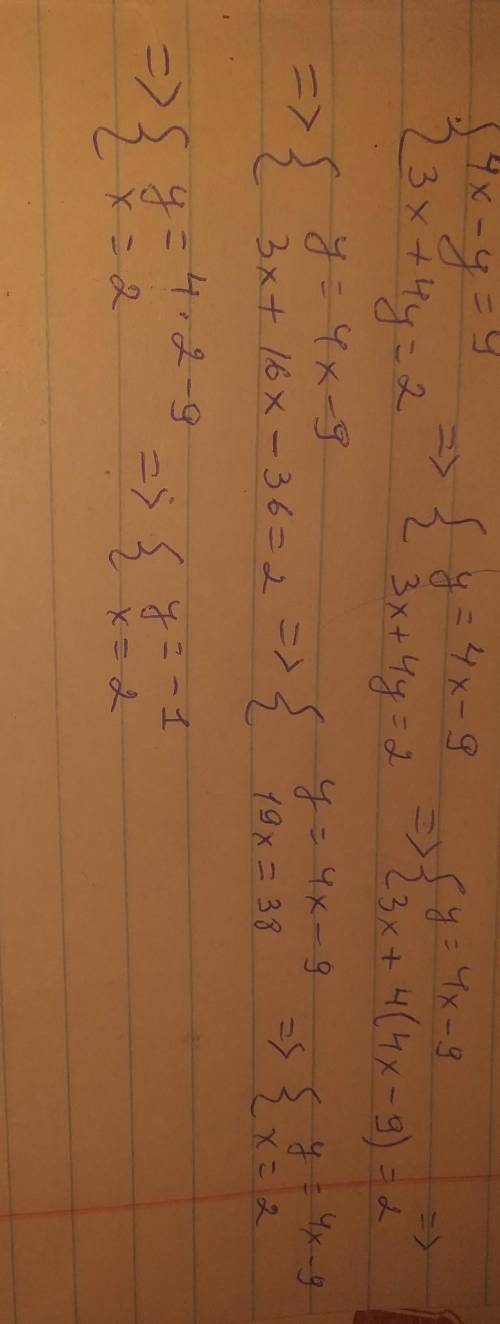 { 4x - y = 9
{ 3x + 4y = 2 => { y = 4x - 9
{ 3x + 4y = 2 => { y = 4x - 9
{ 3x + 4(4x - 9) = 2 =>
=> { y = 4x - 9
{ 3x + 16x - 36 = 2 => { y = 4x - 9
{ 19x = 38 => { y = 4x - 9
{ x = 2
=> { y = 4 · 2 - 9
{ x = 2 => { y = -1
{ x = 2